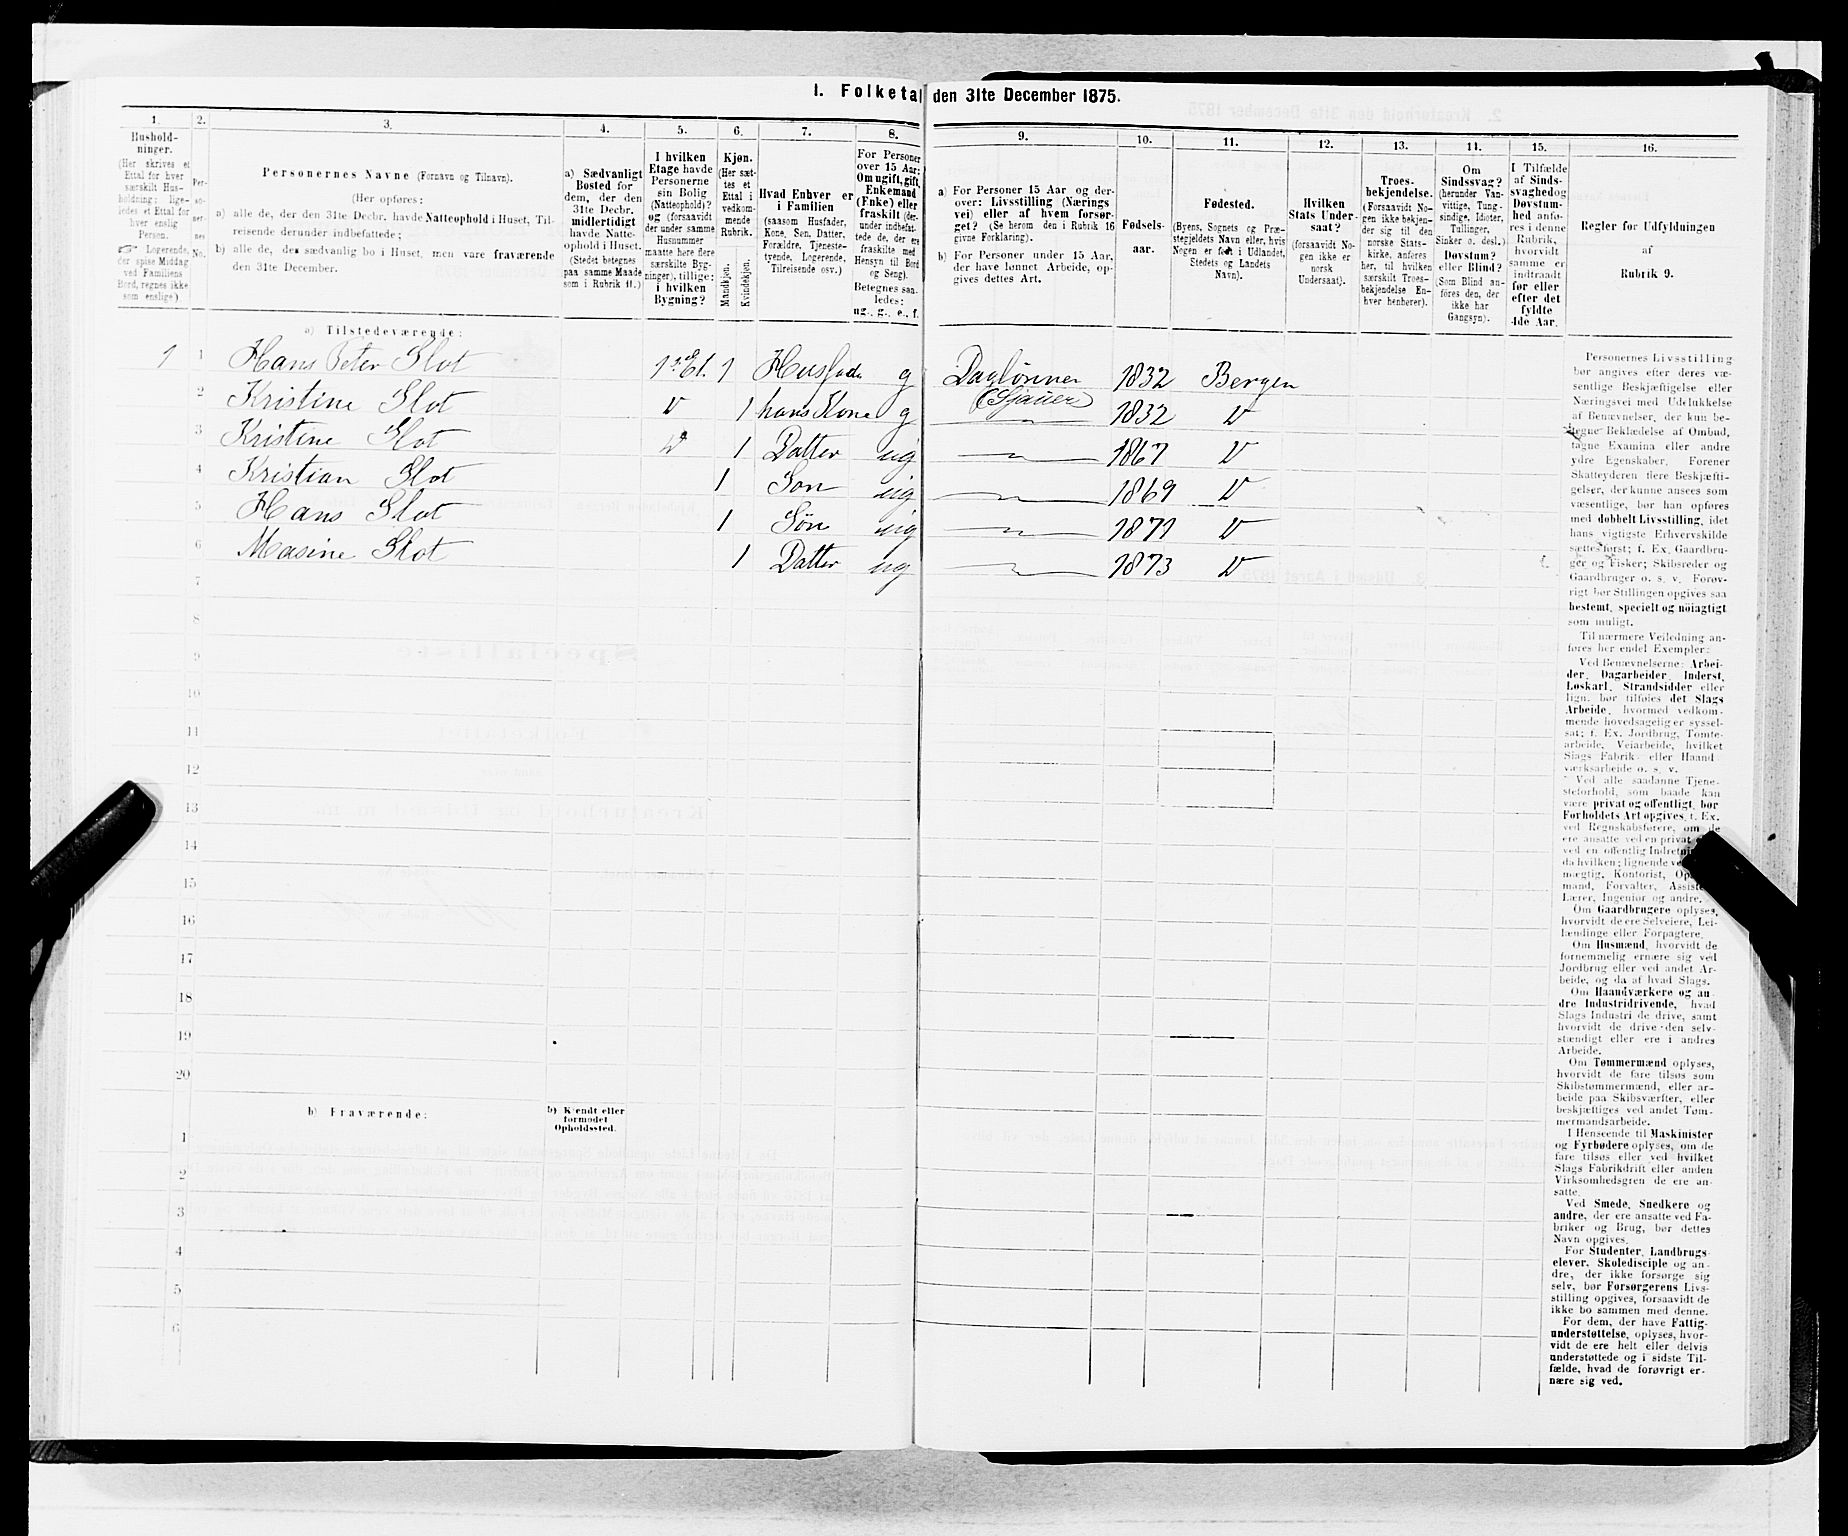 1. Folketal den 31te December 1875.
1.
Hushold-
ninger.
(Her skrives et
Ettal for hver
særskilt Hus-
holdning; lige-
ledes et Ettal for
hver enslig
Person.
Logerende,
der spise Middag
ved Familiens
Bord, regnes ikke
som enslige.)
2.
Per-
so-
ner-
nes
No.
3.
Personernes Navne (Fornavn og Tilnavn).
(Her opføres:
a) alle de, der den 31te Decbr. havde Natteophold i Huset, Til-
reisende derunder indbefattede;
b) alle de, der sædvanlig bo i Huset, men vare fraværende
den 31te December.
4.
a) Sædvanligt
Bosted for
dem, der den
31te Decbr.
midlertidigt
havde Natte-
ophold i Huset.
(Stedet betegnes
paa samme Maade
som i Rubrik 11.)
5.
I hvilken
Etage havde
Personerne
sin Bolig
(Natteophold)?
og (forsaavidt
der under samme
Husnummer
maatte høre flere
særskilte Byg-
ninger), tillige:
i hvilken
Bygning?
6.
Kjøn.
(Her sæt-
tes et
Ettal i
vedkom-
mende
Rubrik.
Mandkjøn.
Kvindekjøn.
7.
Hvad Enhver er
i Familien
(saasom Husfader,
Kone, Søn, Datter,
Forældre, Tjeneste-
tyende, Logerende,
Tilreisende osv.)
8.
For Personer
over 15 Aar:
Om ugift, gift,
Enkemand
(Enke) eller
fraskilt (der-
under indbefat-
tede de, der ere
fraskilte med
Hensyn til Bord
og Seng).
Betegnes saa-
ledes:
ug., g., e., f.
9.
a) For Personer 15 Aar og der-
over: Livsstilling (Nærings-
vei) eller af hvem forsør-
get? (Se herom den i Rubrik 16
givne Forklaring).
b) For Personer under 15 Aar,
der have lønnet Arbeide, op-
gives dettes Art.
10.
Fødsels-
aar.
11.
Fødested.
(Byens, Sognets og Præ-
stegjeldets Navn eller, hvis
Nogen er født i Udlandet,
Stedets og Landets
Navn).
12.
Hvilken
Stats Under-
saat?
(forsaavidt No-
gen ikke er
norsk
Undersaat).
13.
Troes-
bekjendelse.
(Forsaavidt No-
gen ikke bekjen-
der sig til den
norske Stats-
kirke, anføres
her, til hvilken
særskilt Troes-
bekjendelse En-
hver henhører).
14.
Om
Sindssvag?
(herunder Van-
vittige, Tung-
sindige, Idioter,
Tullinger,
Sinker o. desl.)
Døvstum?
eller Blind?
(Som Blind an-
føres den, der
ikke har
Gangsyn).
15.
I Tilfælde
af Sinds-
svaghed og
Døvstum-
hed anfø-
res i denne
Rubrik,
hvorvidt
samme er
indtraadt
før eller
efter det
fyldte
4de Aar.
16.
Regler for Udfyldningen
af
Rubrik 9.
a) Tilstedeværende:
1 1 Hans Peter Slot 1ste Et. 1 Husfader g Daglønner (Sjauer) 1832 Bergen
2 Kristine Slot " 1 hans Kone g " 1832 "
3 Kristine Slot " 1 Datter ug " 1867 "
4 Kristian Slot 1 Søn ug " 1869 "
5 Hans Slot 1 Søn ug " 1871 "
6 Masine Slot 1 Datter ug " 1873 "
7
8
9
10
11
12
13
14
15
16
17
18
19
20
b) Fraværende:
b) Kjendt eller
formodet
Opholdssted.
1
2
3
4
5
6
Personernes Livsstilling
bør angives efter deres væ-
sentlige Beskjæftigelse eller
Næringsvei med Udelukkelse
af Benævnelser, der kun be-
tegne Beklædelse af Ombud,
tagne Examina eller andre
ydre Egenskaber. Forener
Skatteyderen flere Beskjæfti-
gelser, der kunne ansees som
væsentlige, bør han opføres
med dobbelt Livsstilling, idet
hans vigtigste Erhvervskilde
sættes først; f. Ex. Gaardbru-
ger og Fisker; Skibsreder og
Gaardbruger o. s. v. Forøv-
rigt bør Stillingen opgives saa
bestemt, specielt og nöiagtigt
som muligt.
Til nærmere Veiledning an-
føres her endel Exempler:
Ved Benævnelserne: Arbei-
der, Dagarbeider, Inderst,
Løskarl, Strandsidder eller
lign. bør tilføies det Slags
Arbeide, hvormed vedkom-
mende hovedsagelig er syssel-
sat; f. Ex. Jordbrug, Tomte-
arbeide, Veiarbeide, hvilket
Slags Fabrik- eller Haand-
værksarbeide o. s. v.
Ved alle saadanne Tjene-
steforhold, som baade kan
være privat og offentligt, bør
Forholdets Art opgives, f. Ex.
ved Regnskabsførere, om de
ere ansatte ved en privat
ved en offentlig
da hvilken; lignende ved
mægtig, Kontorist,
mand, Forvalter,
Lærer, Ingeniør og andre.
Om Gaardbrugere oplyses,
hvorvidt de ere Selveiere, Lei-
lændinge eller Forpagtere.
Om Husmænd, hvorvidt de
fornemmelig ernære sig ved
Jordbrug eller ved andet Ar-
beide, og da af hvad Slags.
Om Haandværkere og an-
dre Industridrivende, hvad
Slags Industri de drive, samt
hvorvidt de drive den selv-
stændigt eller ere i andres
Arbeide.
Om Tømmermænd oplyses,
hvorvidt de fare tilsøs som
Skibstømmermænd, eller ar-
beide paa Skibsværfter, eller
beskjæftiges ved andet Tøm-
mermandsarbeide.
I Henseende til Maskinister
og Fyrbødere oplyses, om de
fare tilsøs eller ved hvilket
Slags Fabrikdrift eller anden
Virksomhedsgren de ere an-
satte.
Ved Smede, Snedkere og
andre, der ere ansatte ved Fa-
briker og Brug, bør dettes
Navn opgives.
For Studenter, Landbrugs-
elever, Skoledisciple og an-
dre, der ikke forsørge sig
selv, bør Forsørgerens Livs-
stilling opgives, forsaavidt de
ikke bo sammen med denne.
For dem, der have Fattig-
understøttelse, oplyses, hvor-
vidt de ere helt eller delvis
understøttede og i sidste Til-
fælde, hvad de forøvrigt er-
nære sig ved.